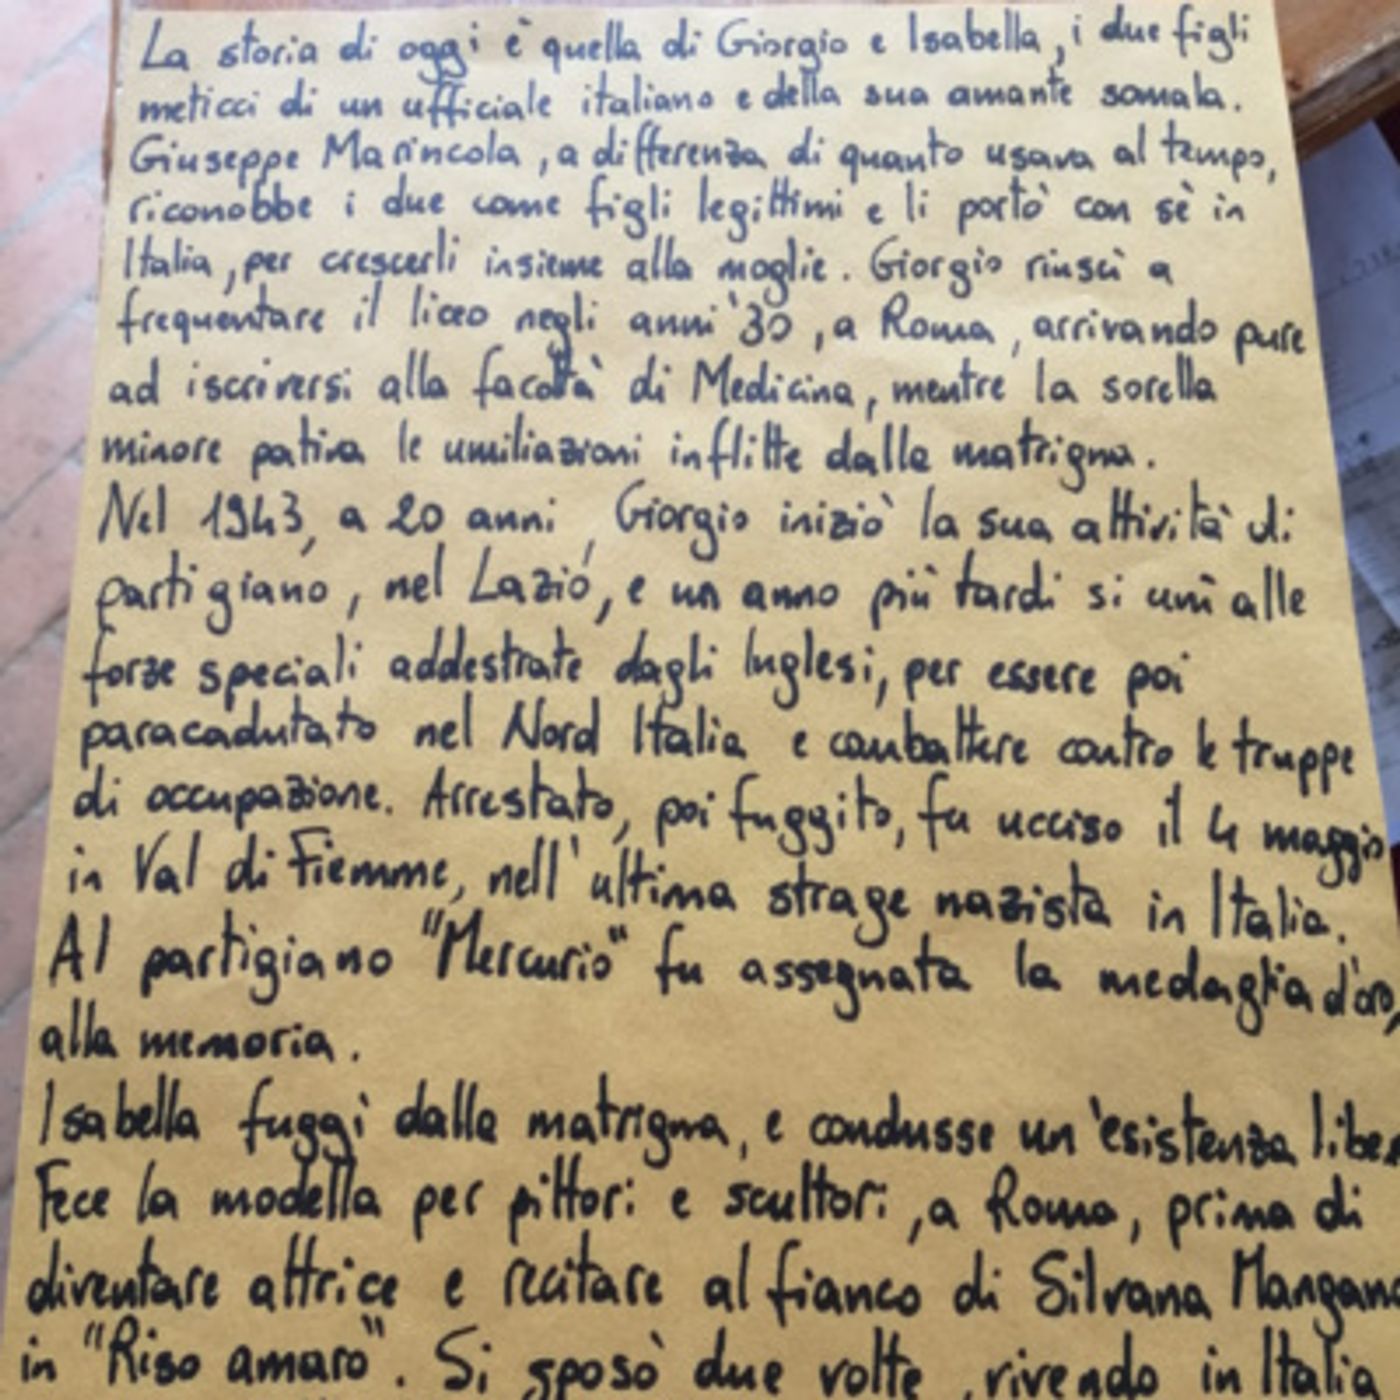 La storia di oggi è quella di Giorgio e Isabella, i due figli
meticci di un ufficiale italiano e della sua amante somala.
Giuseppe Marincola, a differenza di quanto usava al tempo,
riconobbe i due come figli legittimi e li portò con sè in
Italia, per crescerli insieme alla moglie. Giorgio riuscì a
frequentare il liceo negli anni '30, a Roma, arrivando pure
ad iscriversi alla facoltà di Medicina, mentre la sorella
minore pativa le umiliazioni inflitte dalla matrigna.
Nel 1943, a 20 anni, Giorgio iniziò la sua attività di
partigiano, nel Lazio, e un anno più tardi si unì alle
forze speciali addestrate dagli Inglesi, per essere poi
paracadutato nel Nord Italia e combattere contro le truppe
di occupazione. Arrestato, poi fuggito, fu ucciso il 4 maggio
in Val di Fiemme, nell'ultima strage nazista in Italia.
Al partigiano "Mercurio" fu assegnata la medaglia d'oro,
alla memoria.
Isabella fuggì dalla matrigna, e condusse un'esistenza liber
Fece la modella per pittori e scultori, a Roma, prima di
diventare attrice e recitare al fianco di Silvana Mangan
in "Riso amaro". Si sposò due volte, vivendo in Italia